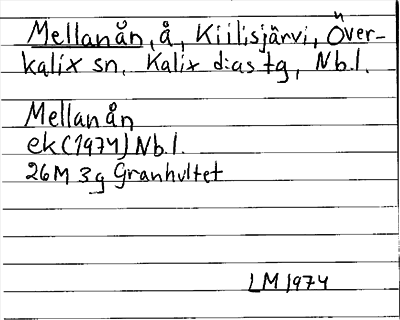 Mellanån, å, Kiilisjärvi, Över-
kalix sn. Kalix d:as tg, Nb.l.
Mellanån
ek (1974) Nb.l.
26M 3g Granhultet
LM 1974